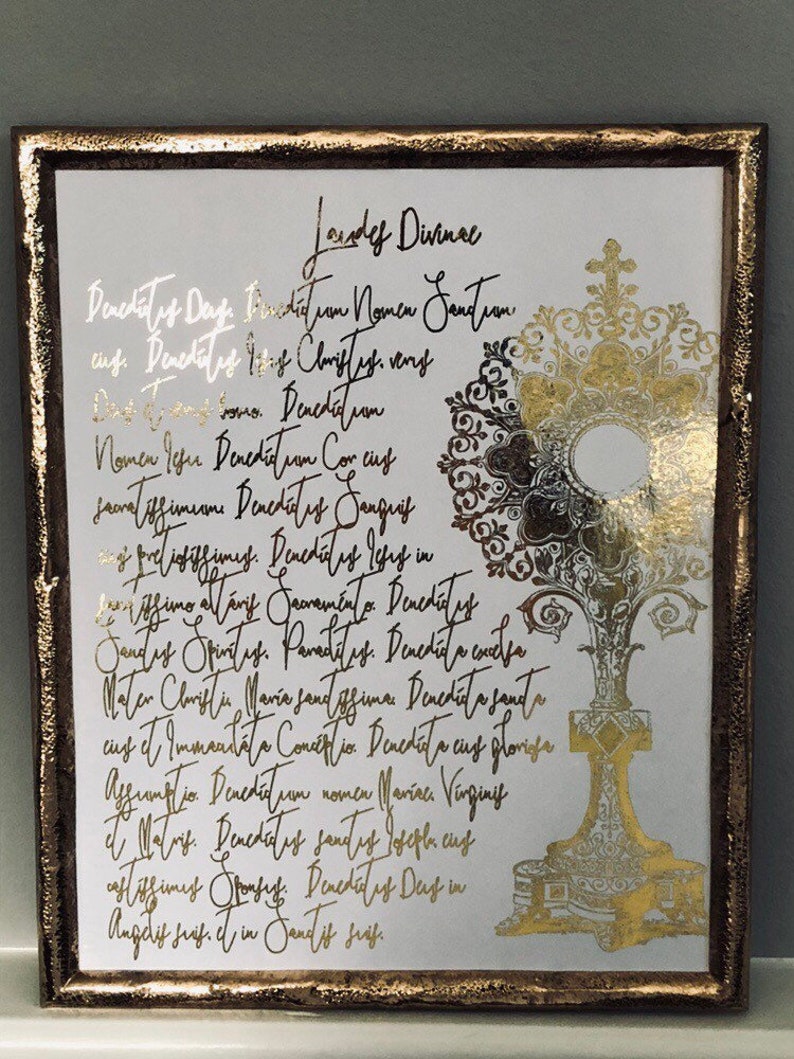 Laudes Divinae
Benedíctus Deus. Benedíctum Nomen Sanctum
eius. Benedíctus Iesus Christus, verus
Deus et verus homo. Benedíctum
Nomen Iesu. Benedíctum Cor eius
sacratíssimum. Benedíctus Sanguis
eius pretiosíssimus. Benedíctus Iesus in
sanctíssimo altáris Sacraménto. Benedíctus
Sanctus Spíritus, Paraclítus. Benedícta excelsa
Mater Christi, María sanctíssima. Benedícta sancta
eius et Immaculáta Concéptio. Benedícta eius gloriosa
Assumptio. Benedíctum nomen Maríae, Vírginis
et Matris. Benedíctus sanctus Ioseph, eius
castíssimus Sponsus. Benedíctus Deus in
Angelis suis, et in Sanctis suis.